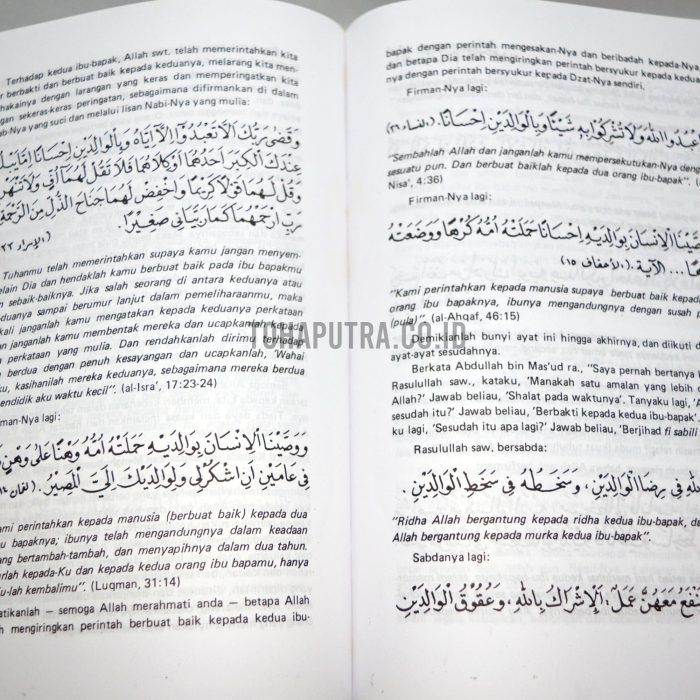 Terhadap kedua ibu-bapak, Allah swt. telah memerintahkan kita
berbakti dan berbuat baik kepada keduanya, melarang kita men-
hakainya dengan larangan yang keras dan memperingatkan kita
gan sekeras-keras peringatan, sebagaimana difirmankan di dalam
b-Nya yang suci dan melalui lisan Nabi-Nya yang mulia:
وَقَضَى رَبُّكَ أَلَّا تَعْبُدُوا إِلَّا إِيَّاهُ وَبِالْوَالِدَيْنِ إِحْسَانًا إِمَّا يَبْلُ
عِنْدَكَ الْكِبَرَ أَحَدُهُمَا أَوْ كِلَاهُمَا فَلَا تَقُلْ لَهُمَا أُفٍّ وَلَا تَنْهَرْ
وَقُلْ لَهُمَا قَوْلًا كَرِيمًا وَاخْفِضْ لَهُمَا جَنَاحَ الذُّلِّ مِنَ الرَّحْمَةِ
رَبِّ ارْحَمْهُمَا كَمَا رَبَّيَانِي صَغِيرًا.
(الإسراء ٢٣
Tuhanmu telah memerintahkan supaya kamu jangan menyem-
elain Dia dan hendaklah kamu berbuat baik pada ibu bapakmu
n sebaik-baiknya. Jika salah seorang di antara keduanya atau
duanya sampai berumur lanjut dalam pemeliharaanmu, maka
kali janganlah kamu mengatakan kepada keduanya perkataan
an janganlah kamu membentak mereka dan ucapkanlah kepada
perkataan yang mulia. Dan rendahkanlah dirimu terhadap
berdua dengan penuh kesayangan dan ucapkanlah, 'Wahai
ku, kasihanilah mereka keduanya, sebagaimana mereka berdua
endidik aku waktu kecil". (al-Isra', 17:23-24)
rman-Nya lagi:
وَوَصَّيْنَا الْإِنْسَانَ بِوَالِدَيْهِ حَمَلَتْهُ أُمُّهُ وَهْنًا عَلَى وَهْنٍ
فِي عَامَيْنِ أَنِ اشْكُرْ لِي وَلِوَالِدَيْكَ إِلَيَّ الْمَصِيرُ. (لقمان ١٤
ami perintahkan kepada manusia (berbuat baik) kepada dua
u bapaknya; ibunya telah mengandungnya dalam keadaan
ng bertambah-tambah, dan menyapihnya dalam dua tahun.
urlah kepada-Ku dan kepada kedua orang ibu bapamu, hanya
u-lah kembalimu". (Luqman, 31:14)
atikanlah — semoga Allah merahmati anda — betapa Allah
h mengiringkan perintah berbuat baik kepada kedua ibu-
bapak dengan perintah mengesakan-Nya dan beribadah kepada-Nya,
dan betapa Dia telah mengiringkan perintah bersyukur kepada kedua
nya dengan perintah bersyukur kepada Dzat-Nya sendiri.
Firman-Nya lagi:
اعْبُدُوا اللهَ وَلَا تُشْرِكُوا بِهِ شَيْئًا وَبِالْوَالِدَيْنِ إِحْسَانًا. (النساء ٣٦)
"Sembahlah Allah dan janganlah kamu mempersekutukan-Nya dengan
sesuatu pun. Dan berbuat baiklah kepada dua orang ibu-bapak" (
Nisa', 4:36)
Firman-Nya lagi:
صَّيْنَا الْإِنْسَانَ بِوَالِدَيْهِ إِحْسَانًا حَمَلَتْهُ أُمُّهُ كُرْهًا وَوَضَعَتْهُ
هًا ... الآية. (الأحقاف ١٥)
"Kami perintahkan kepada manusia supaya berbuat baik kepada
orang ibu bapaknya, ibunya mengandungnya dengan susah p
(pula)". (al-Ahqaf, 46:15)
Demikianlah bunyi ayat ini hingga akhirnya, dan diikuti d
ayat-ayat sesudahnya.
Berkata Abdullah bin Mas'ud ra., "Saya pernah bertanya k
Rasulullah saw., kataku, 'Manakah satu amalan yang lebih d
Allah?' Jawab beliau, 'Shalat pada waktunya'. Tanyaku lagi, 'A
sesudah itu?' Jawab beliau, 'Berbakti kepada kedua ibu-bapak'.
ku lagi, 'Sesudah itu apa lagi?' Jawab beliau, 'Berjihad fi sabili
Rasulullah saw, bersabda:
اللهِ فِي رِضَا الْوَالِدَيْنِ، وَسَخَطُهُ فِي سَخَطِ الْوَالِدَيْنِ.
"Ridha Allah bergantung kepada ridha kedua ibu-bapak, da
Allah bergantung kepada murka kedua ibu-bapak".
Sabdanya lagi:
نْفَعُ مَعَهُنَّ عَمَلٌ: اَلْإِشْرَاكُ بِاللهِ، وَعُقُوقُ الْوَالِدَيْنِ
TOHAPUTRA.CO.ID